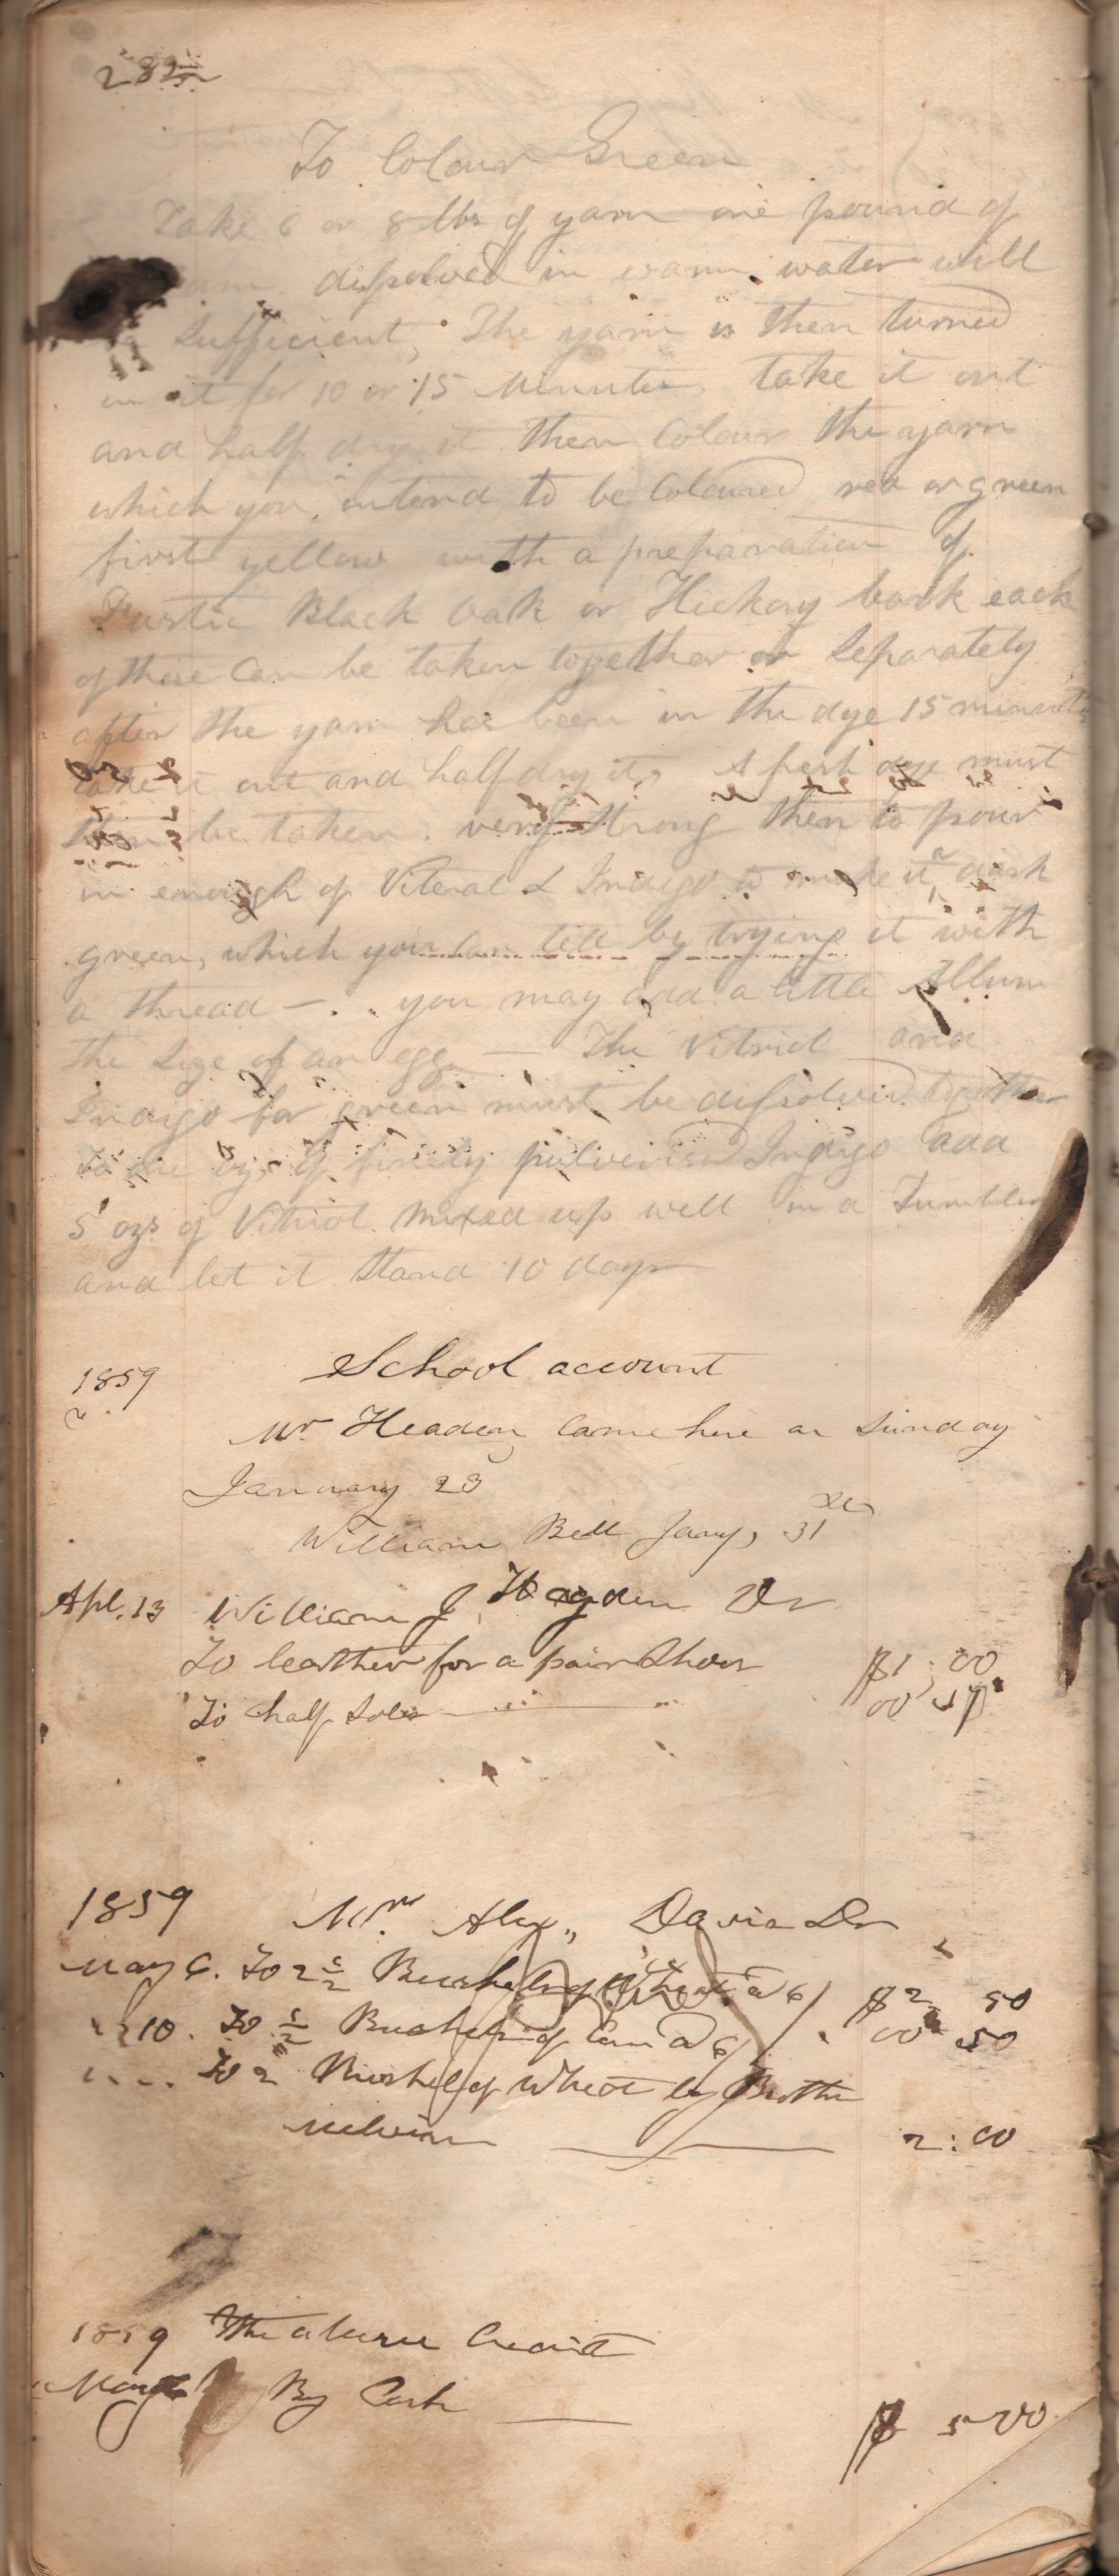 282
To Colour Green
Take 6 or 8 lbs of yarn one pound of
dissolved in warm water will
Sufficient, The yarn is then turned
in it for 10 or 15 Minutes take it out
and half dry it then Colour the yarn
which you intend to be Coloured red or green
first yellow with a preparation of
Fustic Black Oak or Hickory bark each
of these Can be taken together or Separately
after the yarn has been in the dye 15 minutes
take it out and half dry it, A fresh dye must
then be taken very Strong then to pour
in enough of Viteral & Indigo to make it a dark
green, which you can tell by trying it with
a thread — you may add a little Allum
the Size of an egg — The Vitriol and
Indigo for green must be dissolved together
To one oz, of finely pulverised Indigo add
5 ozs of Vitriol Mixed up well in a Tumbler
and let it Stand 10 days
School account
1859
Mr Headen Came here on Sunday
January 23
William Bell Jany, 31
Apl. 13 William J Hayden Dr
To leather for a pair Shoes $1.00
To half Soles 00
1859 Mr. Alex,, Davis Dr
May 6. To 2 1/2 Bushels of Wheat a 6/ $2 50
" 10. To 1/2 Bushel of Corn a 6/ 00 50
" ". To 2 Bushel of Wheat by Brother
Melvin 2:00
1859 The above Credit
May By Cash $ 5 00